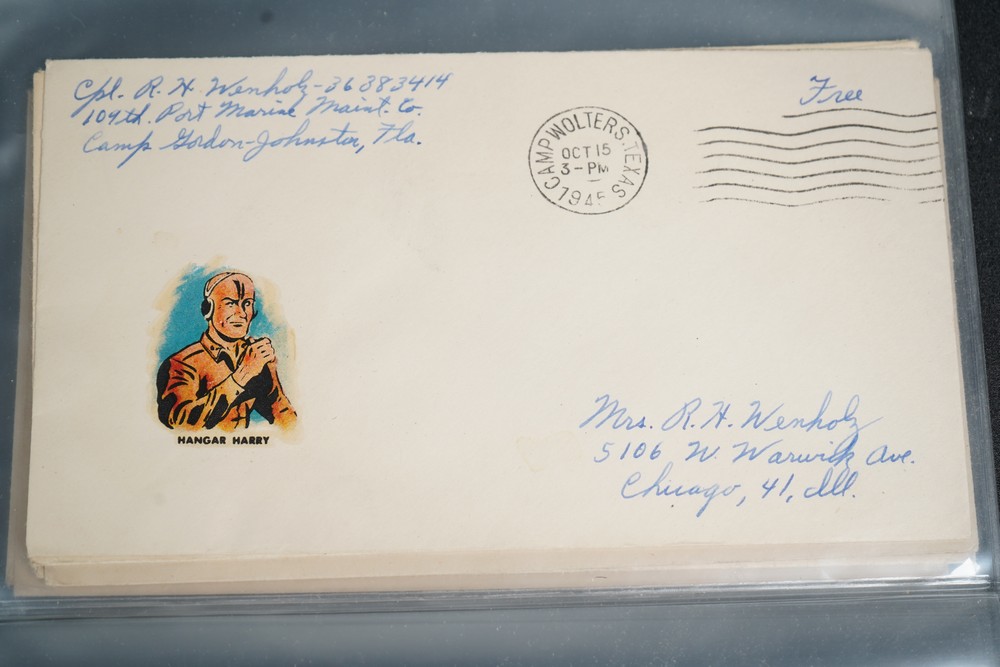 Cpl. R. H. Wenholz-36383414
109th. Port Marine Maint. Co.
Camp Gordon-Johnston, Fla.
Free
CAMP WOLTERS, TEXAS
OCT 15
3-PM
1945
HANGAR HARRY
Mrs. R. H. Wenholz
5106 W. Warwick Ave.
Chicago, 41, Ill.